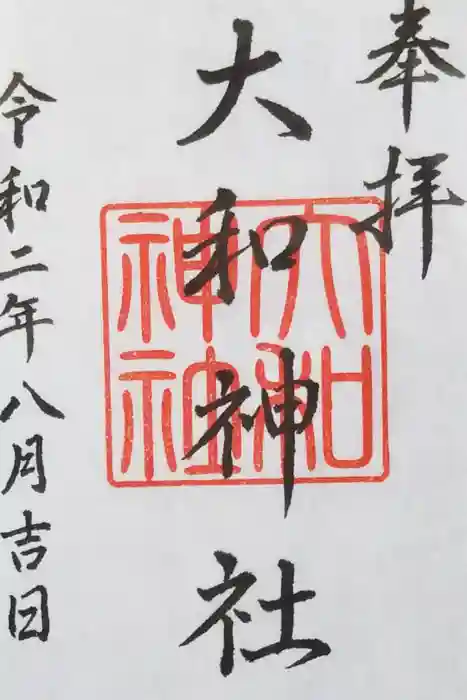 奉拝
大和神社
大和
神社
令和二年八月吉日